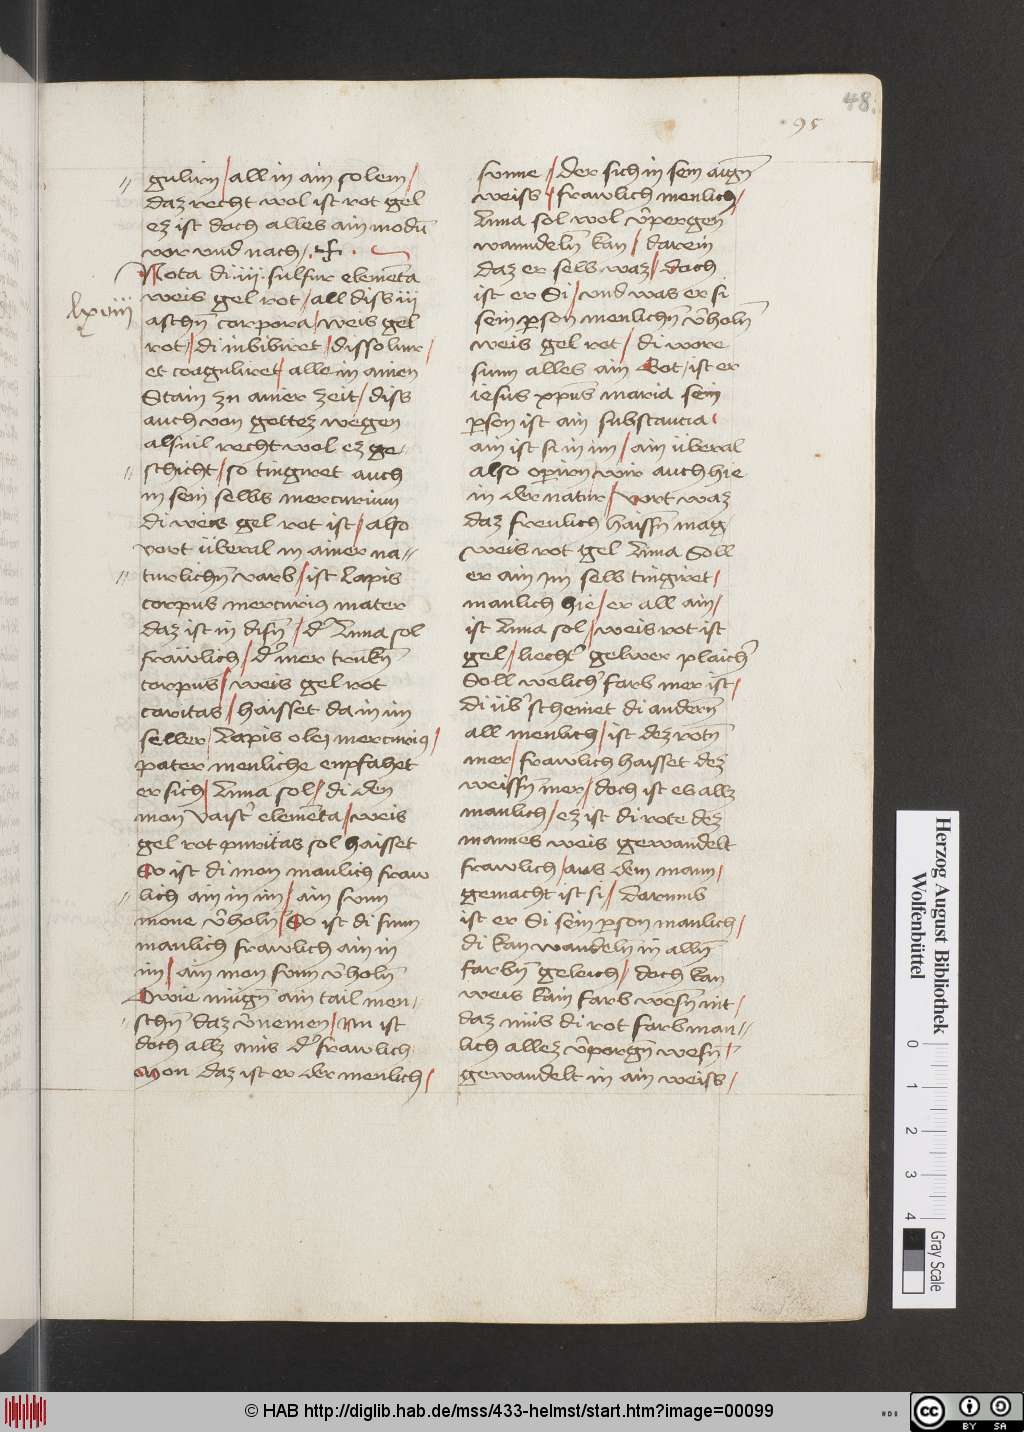 48.
95
gulirn / all in ain solem /
daz recht wol ist rot gel
ez ist doch alles ain modū
vor vnd nach /. ✢ .
Nota di iiii sulfur elemēta
lxviiii
weis gel rot / all diss iij
aschn̄ corpora / weis gel
rot / di inbibiret / dissoluir /
et coaguliret / alle in ainen
Stain zu ainer zeit / diss
auch von gottez wegen
alsuil recht wol ez ge-
schicht / so tingiret auch
in sein selbs mercurium
di weis gel rot ist / also
vort überal in ainer na-
turlichn̄ varb / ist Lapis
corpus mercurius mater
daz ist in disn̄ / d' Luna sol
fraẅlich / d' iner trukn̄
corpus / weis gel rot
caritas / haisset da in im
selber / Lapis olei mercurius /
pater menliche enpfahet
er sich / Luna sol / di den
mon vaist' elemēta / weis
gel rot puritas sol haisset
So ist di mon manlich fraw
lich ain in im / ain sunn
mone v'holn / So ist di sunn
manlich frawlich ain in
im / ain mon sunn v'holn̄
Owie mügn̄ ain tail men-
schn̄ daz v'nemen / Nu ist
doch allz ains d' frawlich
Mon daz ist er der menlich /
sunne / der sich in sein augn̄
weiss / frawlich menlich /
Luna sol wol v'pergen̄
wanndeln̄ kan / darein
daz er selb waz / doch
ist er Si / vnd was er si
sein person menlichn̄ v'holn̄
weis gel rot / di wore
sunn alles ain Got / ist er
iesus xpūs maria sein
person ist ain substancia /
ain ist si in im / ain überal
also operirn wir auch hie
in der natur / vort waz
daz freulich haissn̄ mag
weis rot gel Luna Soll
er ain im selb tingiret /
manlich hie / er all ain /
ist Luna sol / weis rot ist
gel / liecht' gelwer plaich'
Soll welich' farb mer ist /
di üb' scheinet di andern̄
all menlich / ist dez rotn̄
mer / frawlich haisset dez
weissn̄ mer / doch ist es allz
manlich / ez ist di rote dez
mannes weis gewandelt
frawlich / aus dem mann /
gemacht ist si / Darumb
ist er Si sein person manlich /
di kan wandeln in alln̄
farbn̄ geleich / doch kan
weis kain farb wesn̄ nit /
daz mūs di rot farb man-
lich allez v'porgn̄ wesn̄ /
gewandelt in ain weiss /
Herzog August Bibliothek
Wolfenbüttel
0 1 2 3 4
Gray Scale
© HAB http://diglib.hab.de/mss/433-helmst/start.htm?image=00099
cc BY SA